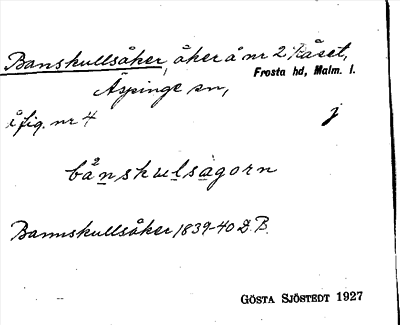 Banskullsåker, åker å nr 2 Råset,
Frosta hd, Malm. l.
Äspinge sn,
i fig. nr 4 j
bånskulsågorn
Bannskullsåker 1839-40 D.B.
GÖSTA SJÖSTEDT 1927